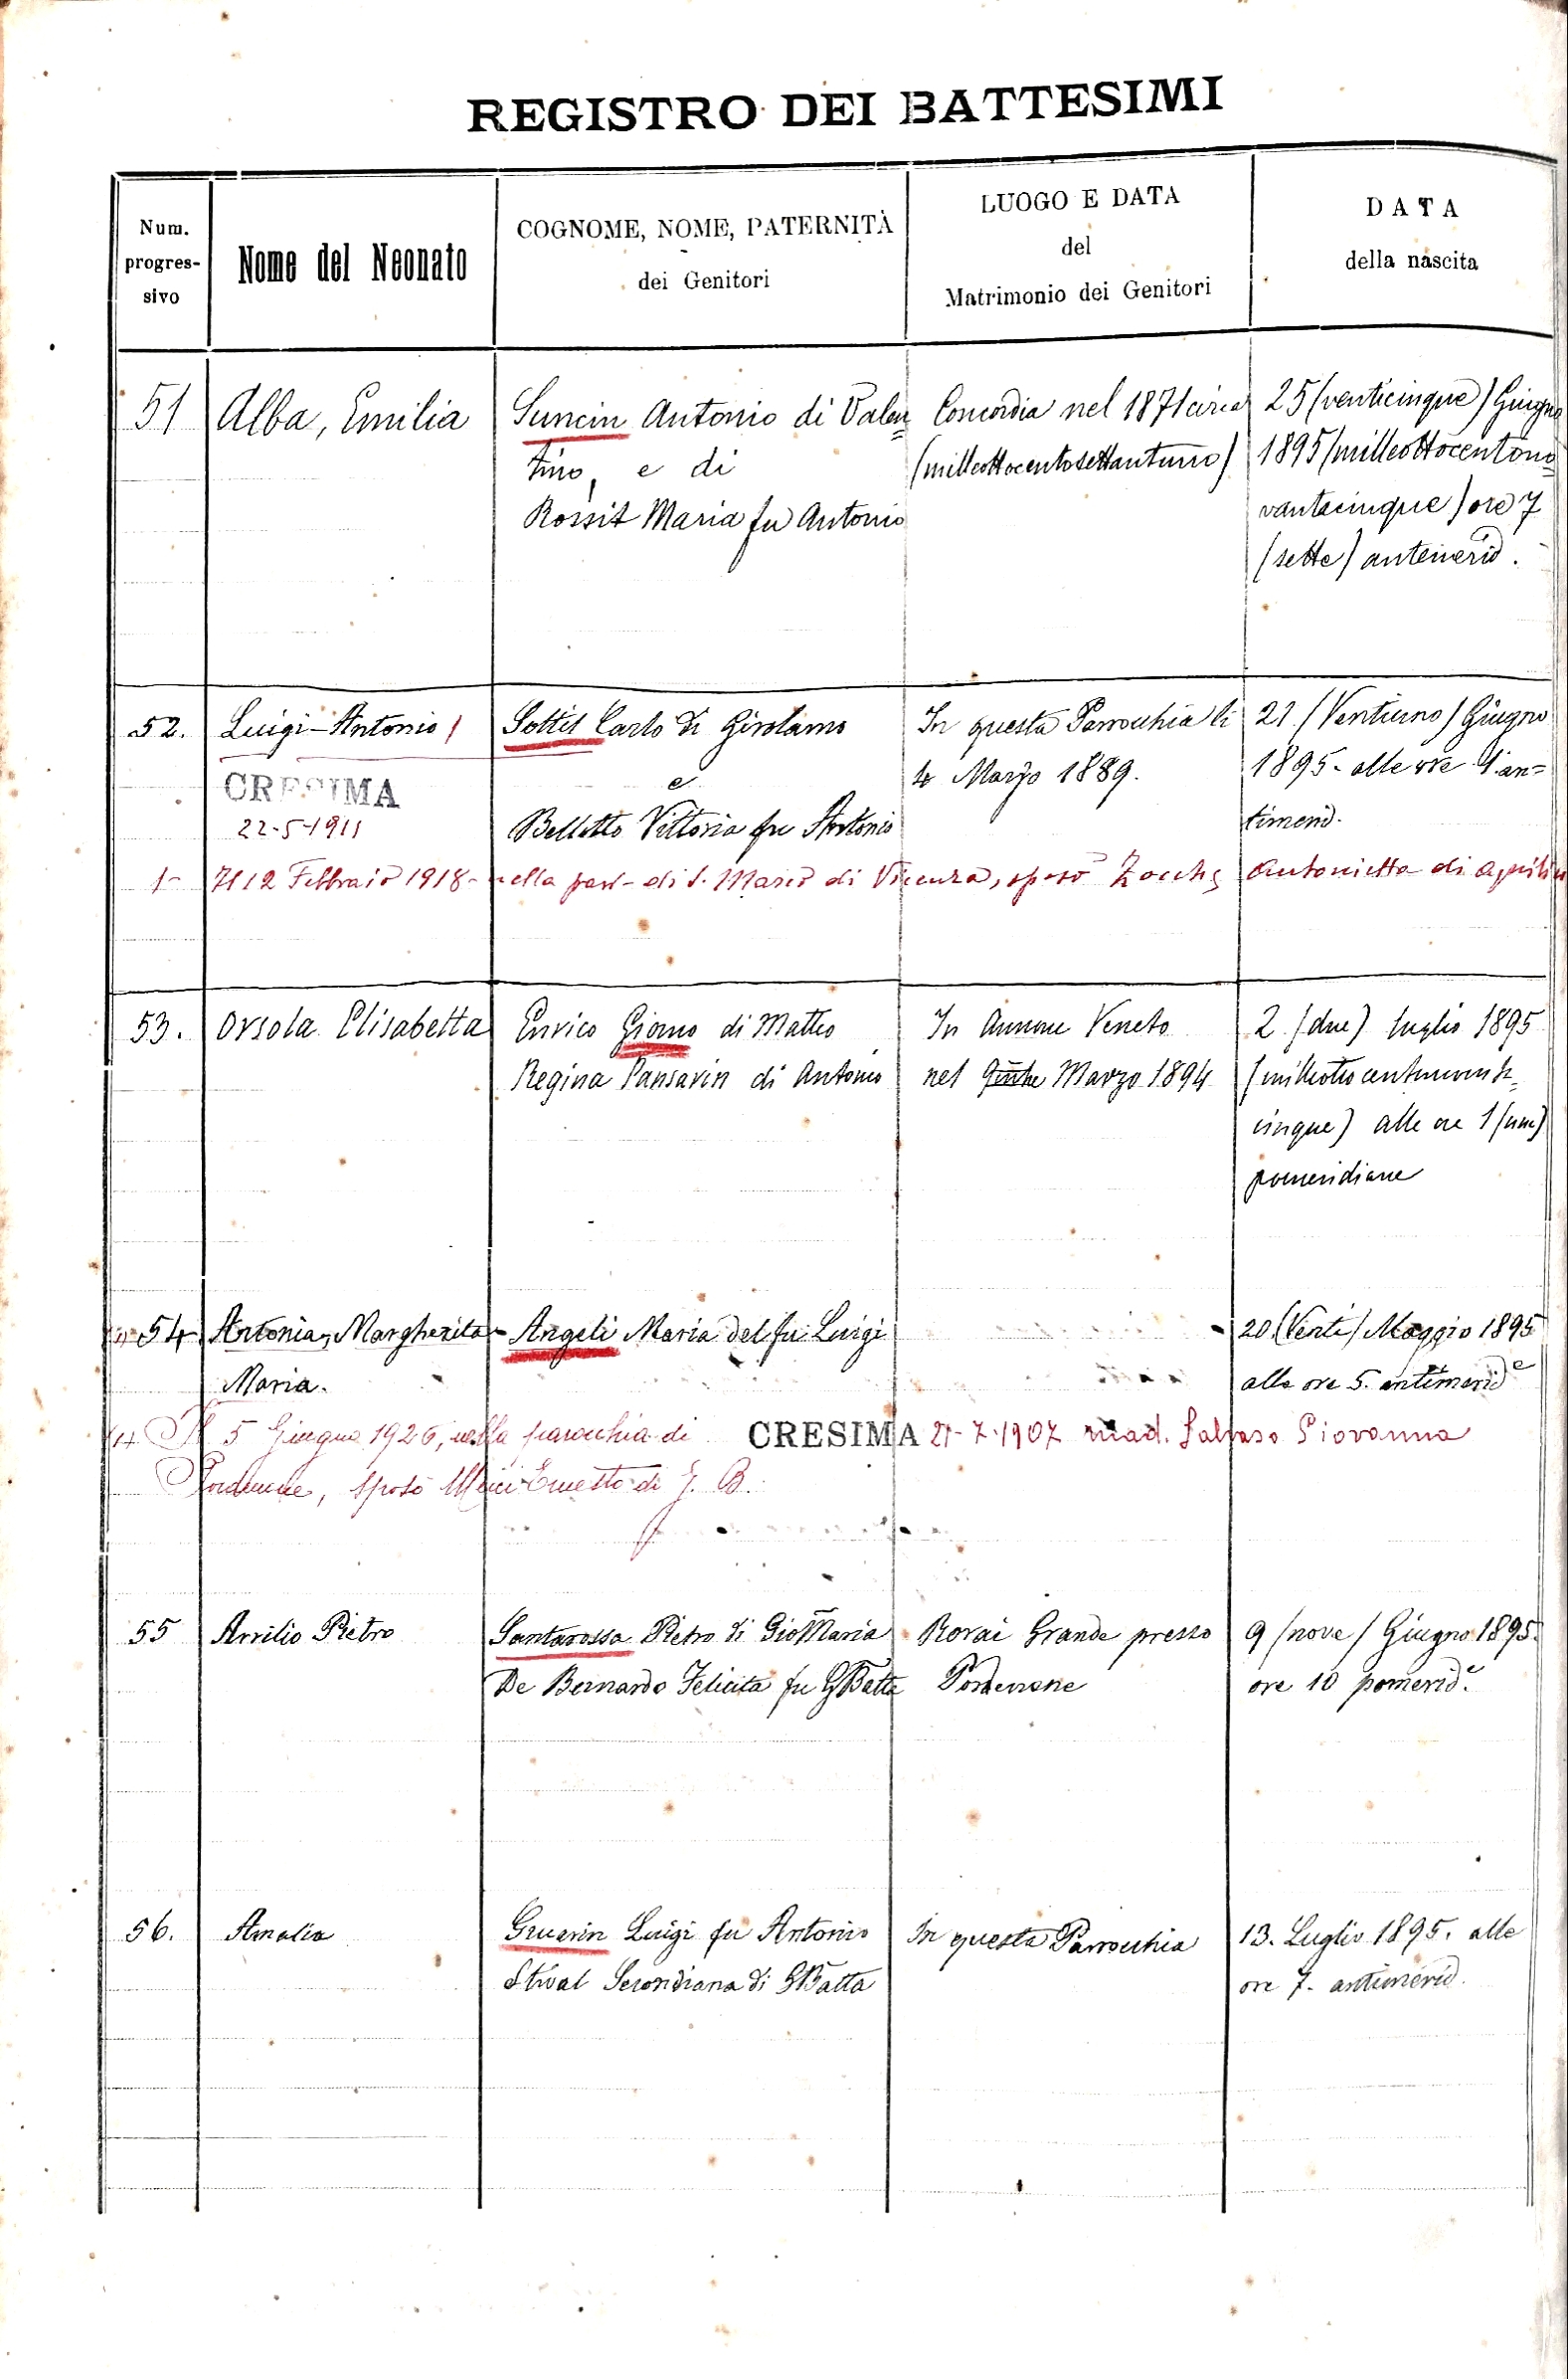 REGISTRO DEI BATTESIMI
Num. progres- sivo
Nome del Neonato
COGNOME, NOME, PATERNITÀ
dei Genitori
LUOGO E DATA
del
Matrimonio dei Genitori
DATA
della nascita
51
Alba, Emilia
Suncin Antonio di Valen=
tino, e di
Rossit Maria fu Antonio
Concordia nel 1871 circa
(milleottocentosettantuno)
25 (venticinque) Giugno
1895 (milleottocentono=
vantacinque) ore 7
(sette) antimerid.
52.
Luigi-Antonio /
CRESIMA
22-5-1911
Sottil Carlo di Girolamo
e
Bellotto Vittoria fu Antonio
In questa Parrocchia li
4 Marzo 1889.
21 (Ventiuno) Giugno
1895- alle ore an=
timerid.
1- Il 12 Febbraio 1918- nella parr- di S. Marco di Vicenza, sposò Antonietta di
53.
Orsola Elisabetta
Enrico Giomo di Matteo
Regina Pansavin di Antonio
In Annone Veneto
nel Marzo 1894
2 (due) luglio 1895
cinque) alle ore 1 (una)
pomeridiane
54
Antonia, Margherita
Maria.
Angeli Maria del fu Luigi
20 (Venti) Maggio 1895
alle ore 5. antimerid.e
Il 5 Giugno 1926, nella parrocchia di
CRESIMA 21-7-1907 mad. Giovanna
Pordenone, sposò Ernesto di G. B.
55
Attilio Pietro
Santarossa Pietro di Gio Maria
De Bernardo Felicita fu G Batta
Rorai Grande presso
Pordenone
9 (nove) Giugno 1895.
ore 10 pomerid.e
56.
Amalia
Gruarin Luigi fu Antonio
Stival Secondiana di G Batta
In questa Parrocchia
13. Luglio 1895. alle
ore 7. antimerid.